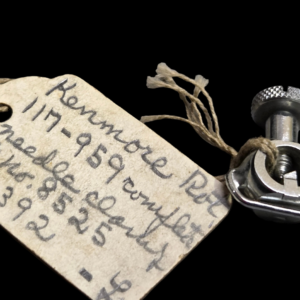 Kenmore Rot
117-959 complete
needle clamp
No 8525
392 -